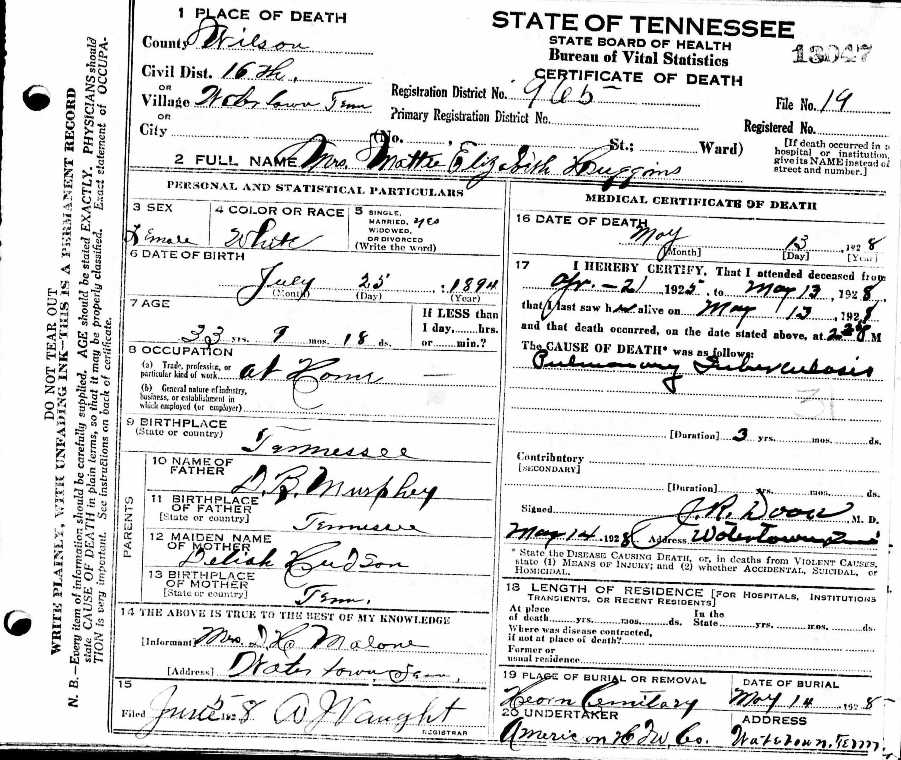 DO NOT TEAR OUT
WRITE PLAINLY, WITH UNFADING INK—THIS IS A PERMANENT RECORD
N. B.—Every item of information should be carefully supplied. AGE should be stated EXACTLY. PHYSICIANS should
state CAUSE OF DEATH in plain terms, so that it may be properly classified. Exact statement of OCCUPA-
TION is very important. See instructions on back of certificate.
1 PLACE OF DEATH
County Wilson
Civil Dist. 16th.
OR
Village Watertown Tenn
OR
City
(No. St.; Ward)
STATE OF TENNESSEE
STATE BOARD OF HEALTH
Bureau of Vital Statistics
CERTIFICATE OF DEATH
13047
Registration District No. 965
File No. 19
Primary Registration District No.
Registered No.
[If death occurred in a
hospital or institution,
give its NAME instead of
street and number.]
2 FULL NAME Mrs. Mattie Elizabith Huggins
PERSONAL AND STATISTICAL PARTICULARS
3 SEX
Female
4 COLOR OR RACE
White
5 SINGLE,
MARRIED, yes
WIDOWED,
OR DIVORCED
(Write the word)
6 DATE OF BIRTH
July 25 1894
(Month) (Day) (Year)
7 AGE
33 yrs. 9 mos. 18 ds.
If LESS than
1 day, hrs.
or min.?
8 OCCUPATION
(a) Trade, profession, or
particular kind of work at Home —
(b) General nature of industry,
business, or establishment in
which employed (or employer)
9 BIRTHPLACE
(State or country)
Tennessee
PARENTS
10 NAME OF
FATHER
D.R. Murphey
11 BIRTHPLACE
OF FATHER
[State or country]
Tennessee
12 MAIDEN NAME
OF MOTHER
Deliah Hudson
13 BIRTHPLACE
OF MOTHER
[State or country]
Tenn.
14 THE ABOVE IS TRUE TO THE BEST OF MY KNOWLEDGE
[Informant] Mrs. Malone
[Address] Watertown, Tenn,
15
Filed June 5 1928 W J Vaught
REGISTRAR
MEDICAL CERTIFICATE OF DEATH
16 DATE OF DEATH
May 13, 1928
[Month] [Day] [Year]
17 I HEREBY CERTIFY, That I attended deceased from
Apr. - 21 1925, to May 13, 1928,
that I last saw her alive on May 13, 1928
and that death occurred, on the date stated above, at M
The CAUSE OF DEATH* was as follows:
Pulmonary Tuberculosis
31
[Duration] 3 yrs. mos. ds.
Contributory
[SECONDARY]
[Duration] yrs. mos. ds.
Signed J.R. M. D.
May 14, 1928 Address Watertown
* State the DISEASE CAUSING DEATH, or, in deaths from VIOLENT CAUSES,
state (1) MEANS OF INJURY; and (2) whether ACCIDENTAL, SUICIDAL, or
HOMICIDAL.
18 LENGTH OF RESIDENCE [FOR HOSPITALS, INSTITUTIONS
TRANSIENTS, OR RECENT RESIDENTS]
At place In the
of death yrs. mos. ds. State yrs. mos. ds.
Where was disease contracted,
if not at place of death?
Former or
usual residence
19 PLACE OF BURIAL OR REMOVAL
Hearn Cemitary
DATE OF BURIAL
May 14 1928
20 UNDERTAKER
American H Co.
ADDRESS
Watetown. Tenn.